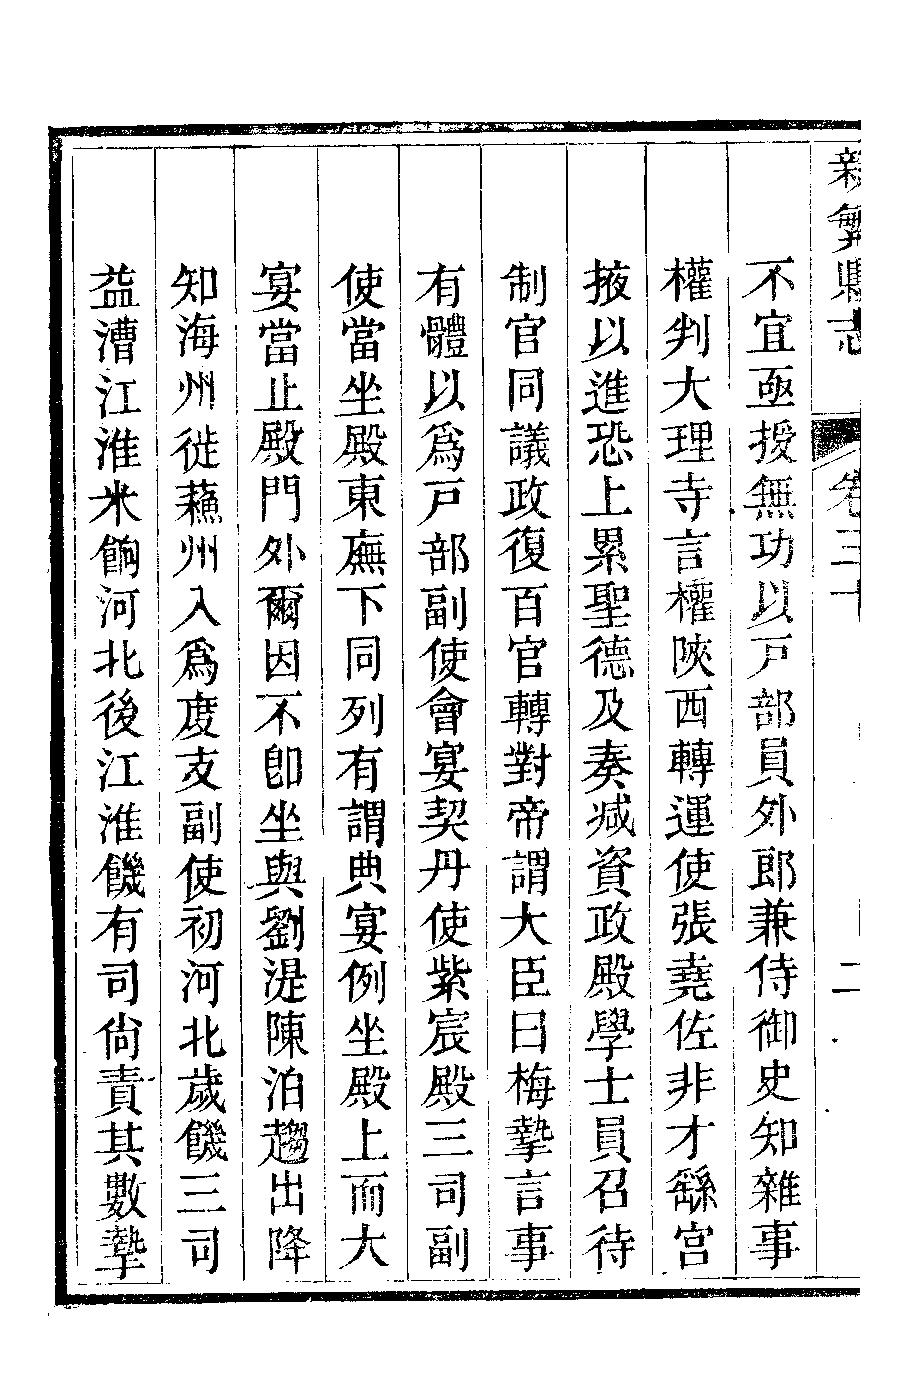 新繁縣志
卷三十
二
不宜亟授無功以戸部員外郎兼侍御史知雜事
權判大理寺言權陝西轉運使張堯佐非才繇宫
掖以進恐上累聖德及奏减資政殿學士員召待
制官同議政復百官轉對帝謂大臣曰梅摯言事
有體以爲戸部副使會宴契丹使紫宸殿三司副
使當坐殿東廡下同列有謂典宴例坐殿上而大
宴當止殿門外爾因不卽坐與劉湜陳洎趨出降
知海州徙蘓州入爲度支副使初河北歲饑三司
益漕江淮米餉河北後江淮饑有司尙責其數摯